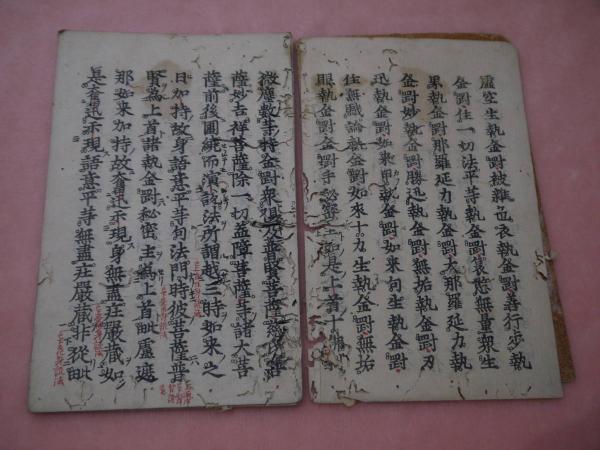 虛空生執金剛被雜色衣執金剛善行歩執
金剛住一切法平等執金剛哀愍無量衆生
界執金剛那羅延力執金剛大那羅延力執
金剛妙執金剛勝迅執金剛無垢執金剛刃
迅執金剛如來甲執金剛如來句生執金剛
住無戲論執金剛如來十力生執金剛無垢
眼執金剛金剛手秘密主如是上首十
微塵數等持金剛衆俱及普賢菩薩慈氏菩
薩妙吉祥菩薩除一切盖障菩薩等諸大菩
薩前後圍繞而演說法所謂越三時如來之
日加持故身語意平等句法門時彼菩薩普
賢為上首諸執金剛秘密主為上首毗盧遮
那如來加持故奮迅示現身無盡莊嚴藏如
是奮迅示現語意平等無盡莊嚴藏非從毗